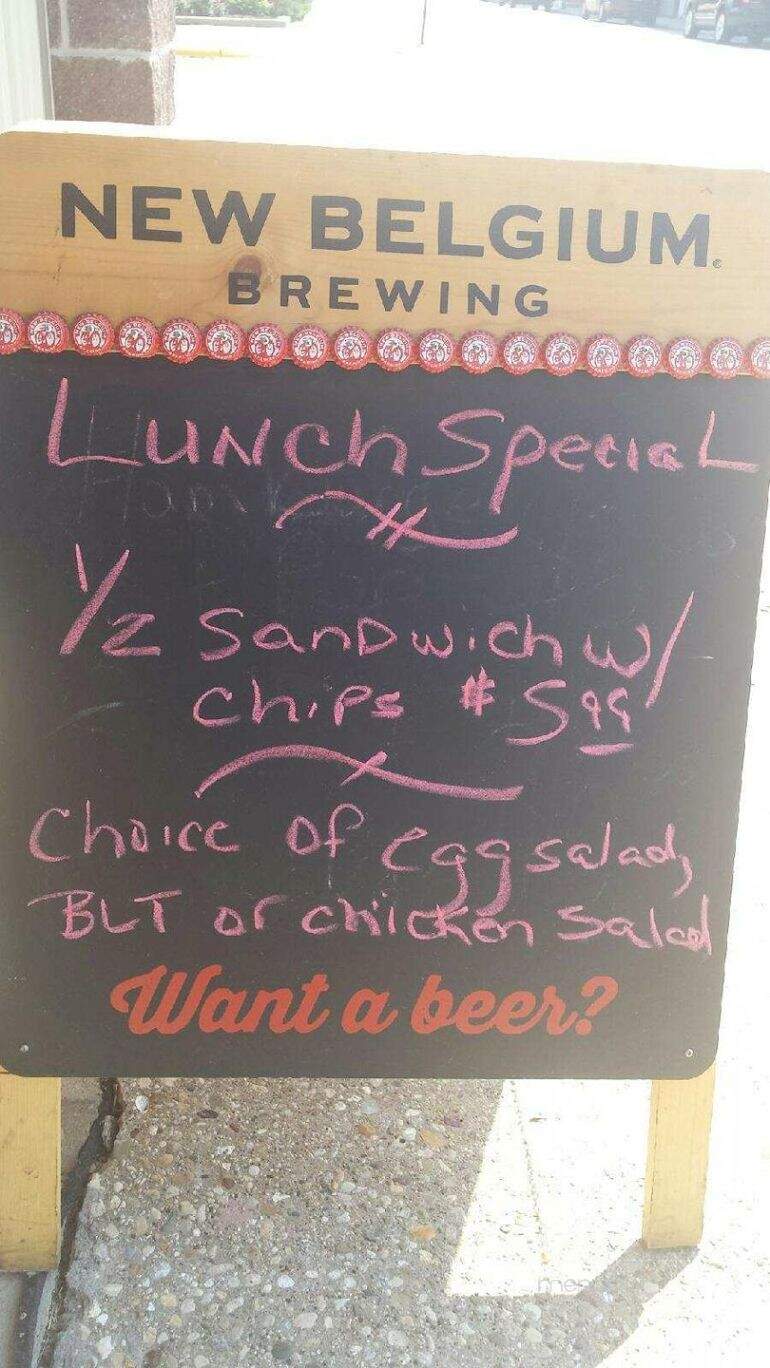 NEW BELGIUM®
BREWING
Lunch Special
1/2 Sandwich w/
chips $5.99
Choice of egg salad,
BLT or chicken salad
Want a beer?